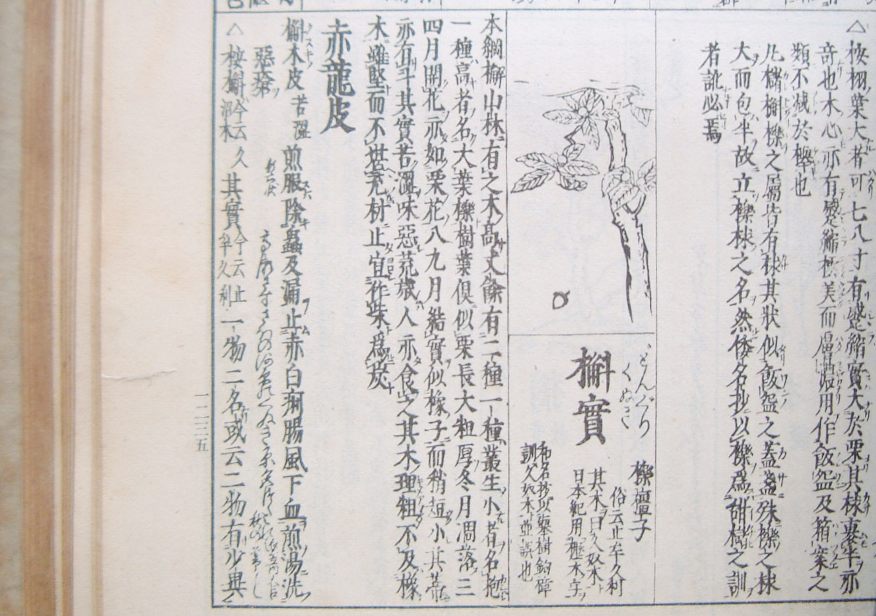 △按栩葉大者可七八寸有蹙縮實大於栗其梂裹半亦
奇也木心亦有蹙縮極美而膚濃用作飯盌及箱案之
類不減於欅也
凡櫧槲櫟之屬皆有梂其狀似飯盌之蓋盞殊櫟之梂
大而包半故立櫟梂之名然倭名抄以櫟爲
若訛必焉
どんぐり
くぬぎ
槲實
櫟橿子
俗云止牟久利
其木曰久奴木
日本紀用歷木字
和名抄以擧樹鉤樟
訓久奴木並誤也
本綱槲山林有之木高丈餘有二種一種叢生小者名抱
一種高者名大葉櫟樹葉俱似栗長大粗厚冬月凋落三
四月開花亦如栗花八九月結實似橡子而稍短小其蒂
亦有斗其實苦澀味惡荒歲人亦食之其木理粗不及橡
木雖堅而不堪充材止宜作柴爲炭
赤龍皮
槲木皮苦澀煎服除蟲及漏止赤白痢腸風下血煎湯洗
惡瘡
△按槲今云久沼木其實今云止牟久利一物二名或云二物有少異
一二三五